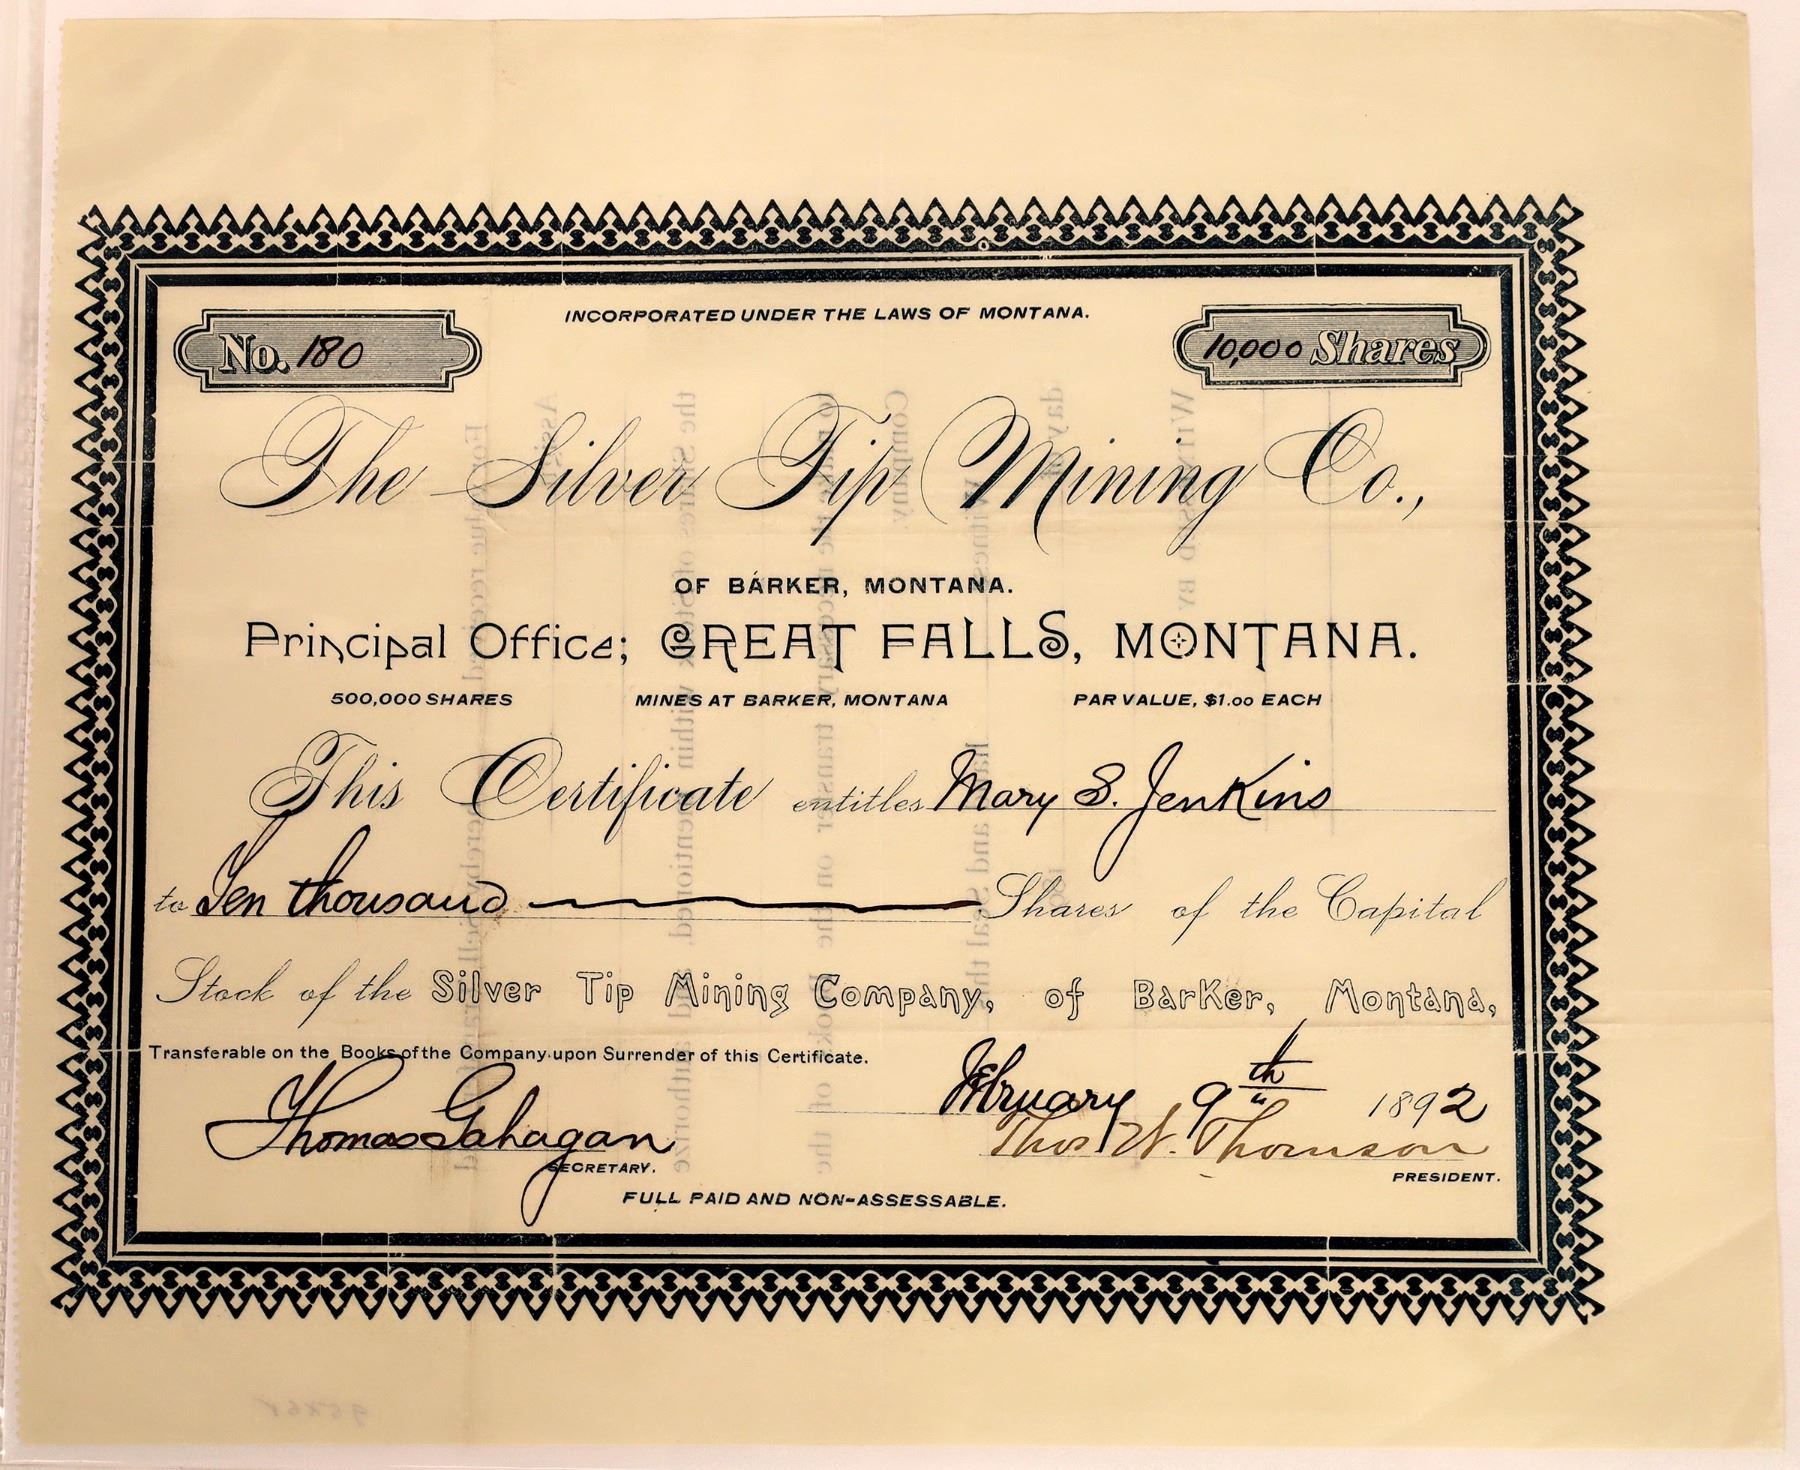 INCORPORATED UNDER THE LAWS OF MONTANA.
No. 180
10,000 Shares
The Silver Tip Mining Co.,
OF BARKER, MONTANA.
Principal Office; GREAT FALLS, MONTANA.
500,000 SHARES MINES AT BARKER, MONTANA PAR VALUE, $1.00 EACH
This Certificate entitles Mary S. Jenkins
to Ten thousand Shares of the Capital
Stock of the Silver Tip Mining Company, of Barker, Montana,
Transferable on the Books of the Company upon Surrender of this Certificate.
February 9th 1892
Thomas Gahagan
SECRETARY.
Thos W. Thomson
PRESIDENT.
FULL PAID AND NON-ASSESSABLE.